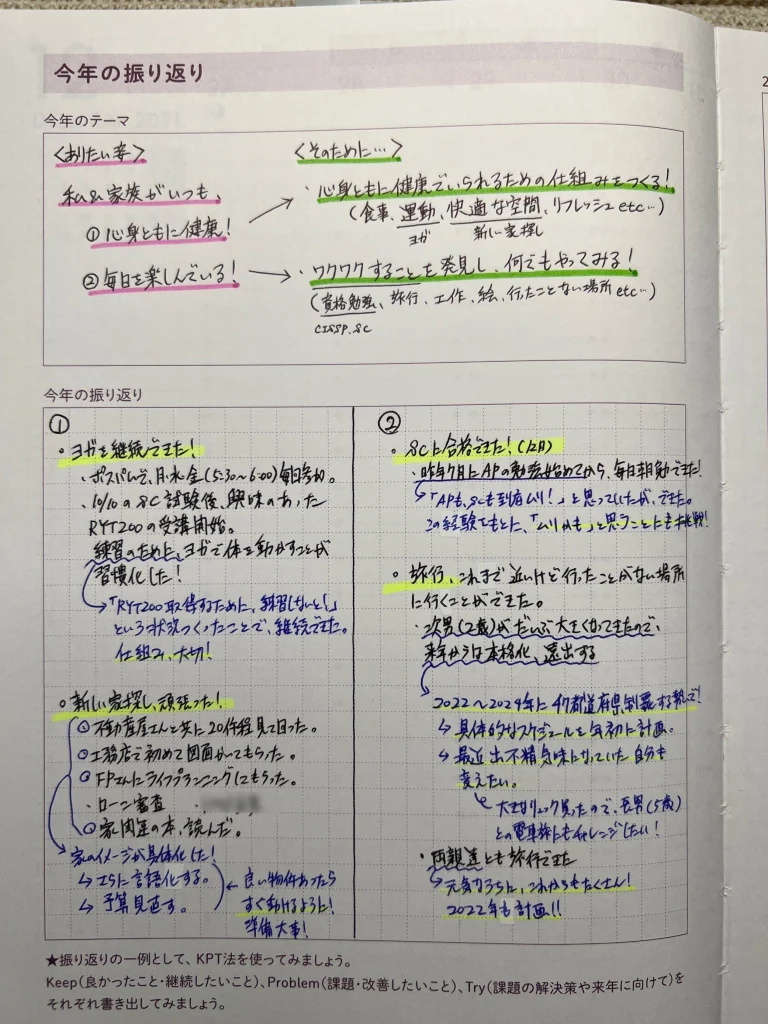 今年の振り返り
今年のテーマ
〈ありたい姿〉
私&家族がいつも、
①心身ともに健康!
②毎日を楽しんでいる!
〈そのために…〉
・心身ともに健康でいられるための仕組みをつくる!
(食事、運動、快適な空間、リフレッシュ etc…)
ヨガ 新しい家探し
・ワクワクすることを発見し、何でもやってみる!
(資格勉強、旅行、工作、絵、行ったことない場所 etc…)
CISSP、SC
今年の振り返り
①
・ヨガを継続できた!
・ポスパムで、月・水・金(5:30~6:00)毎日参加。
・10/10のSC試験後、興味のあった
RYT200の受講開始。
練習のために、ヨガで体を動かすことが
習慣化した!
→「RYT200取得するために、練習しないと!」
という状況つくったことで、継続できた。
仕組み、大切!
○新しい家探し、頑張った!
・不動産屋さんと共に20件程見て回った。
・工務店で初めて図面かいてもらった。
・FPさんにライフプランニングしてもらった。
・ローン審査
・家関連の本、読んだ。
→家のイメージが具体化した!
↳さらに言語化する。
↳予算見直す。
← 良い物件あったら
すぐ動けるように!
準備大事!
②
・SCに合格できた!(12月)
・昨年7月にAPの勉強始めてから、毎日朝勉できた!
→「APも、SCも到底ムリ!」と思っていたが、できた。
この経験をもとに、「ムリかも」と思うことにも挑戦!
○旅行、これまで近いけど行ったことがない場所
に行くことができた。
・次男(2歳)がだいぶ大きくなってきたので、
来年からは本格化、遠出する
→2022~2024年に47都道府県制覇する勢いで!
↳具体的なスケジュールを年初に計画。
↳最近出不精気味になっていた自分も
変えたい。
大きなリュック買ったので、長男(5歳)
との電車旅にもチャレンジしたい!
・両親達とも旅行できた
→元気なうちに、これからもたくさん!
2022年も計画!!
★振り返りの一例として、KPT法を使ってみましょう。
Keep(良かったこと・継続したいこと)、Problem(課題・改善したいこと)、Try(課題の解決策や来年に向けて)を
それぞれ書き出してみましょう。
2